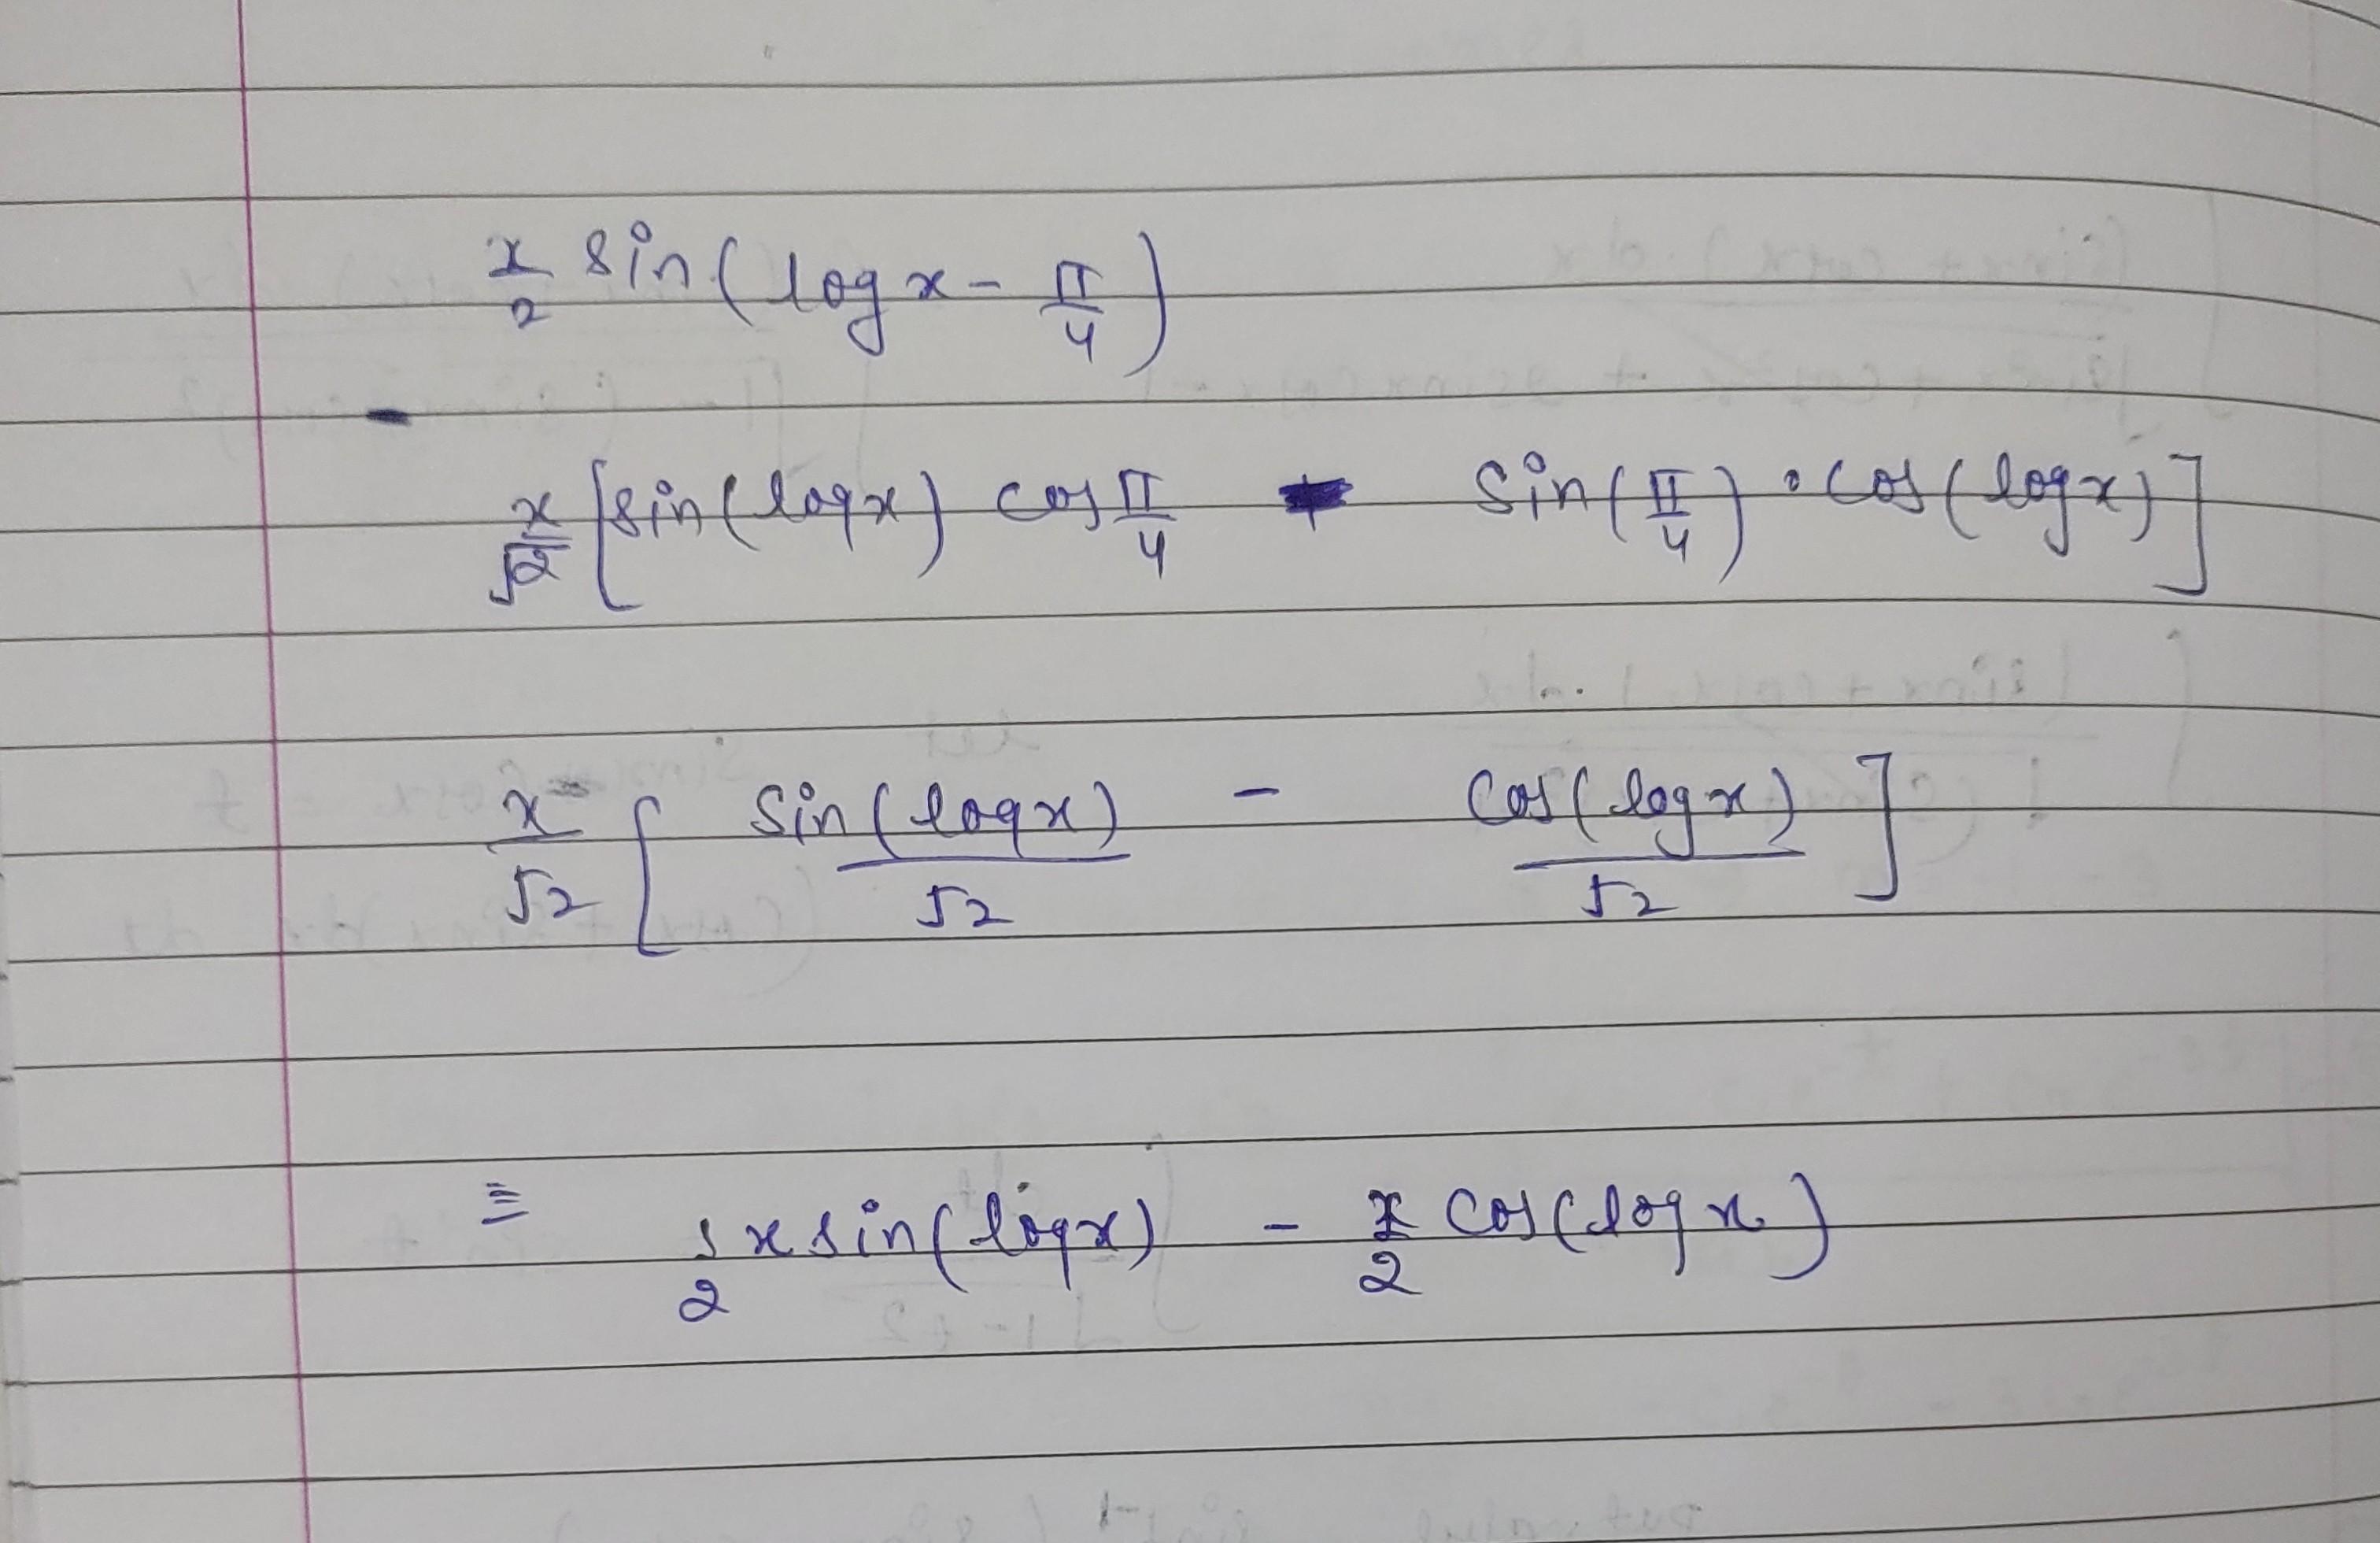 x/2 sin(log x - π/4)
x/√2 [sin(log x) cos π/4 - sin(π/4) . cos(log x)]
x/√2 [sin(log x)/√2 - cos(log x)/√2]
= 1/2 x sin(log x) - x/2 cos(log x)